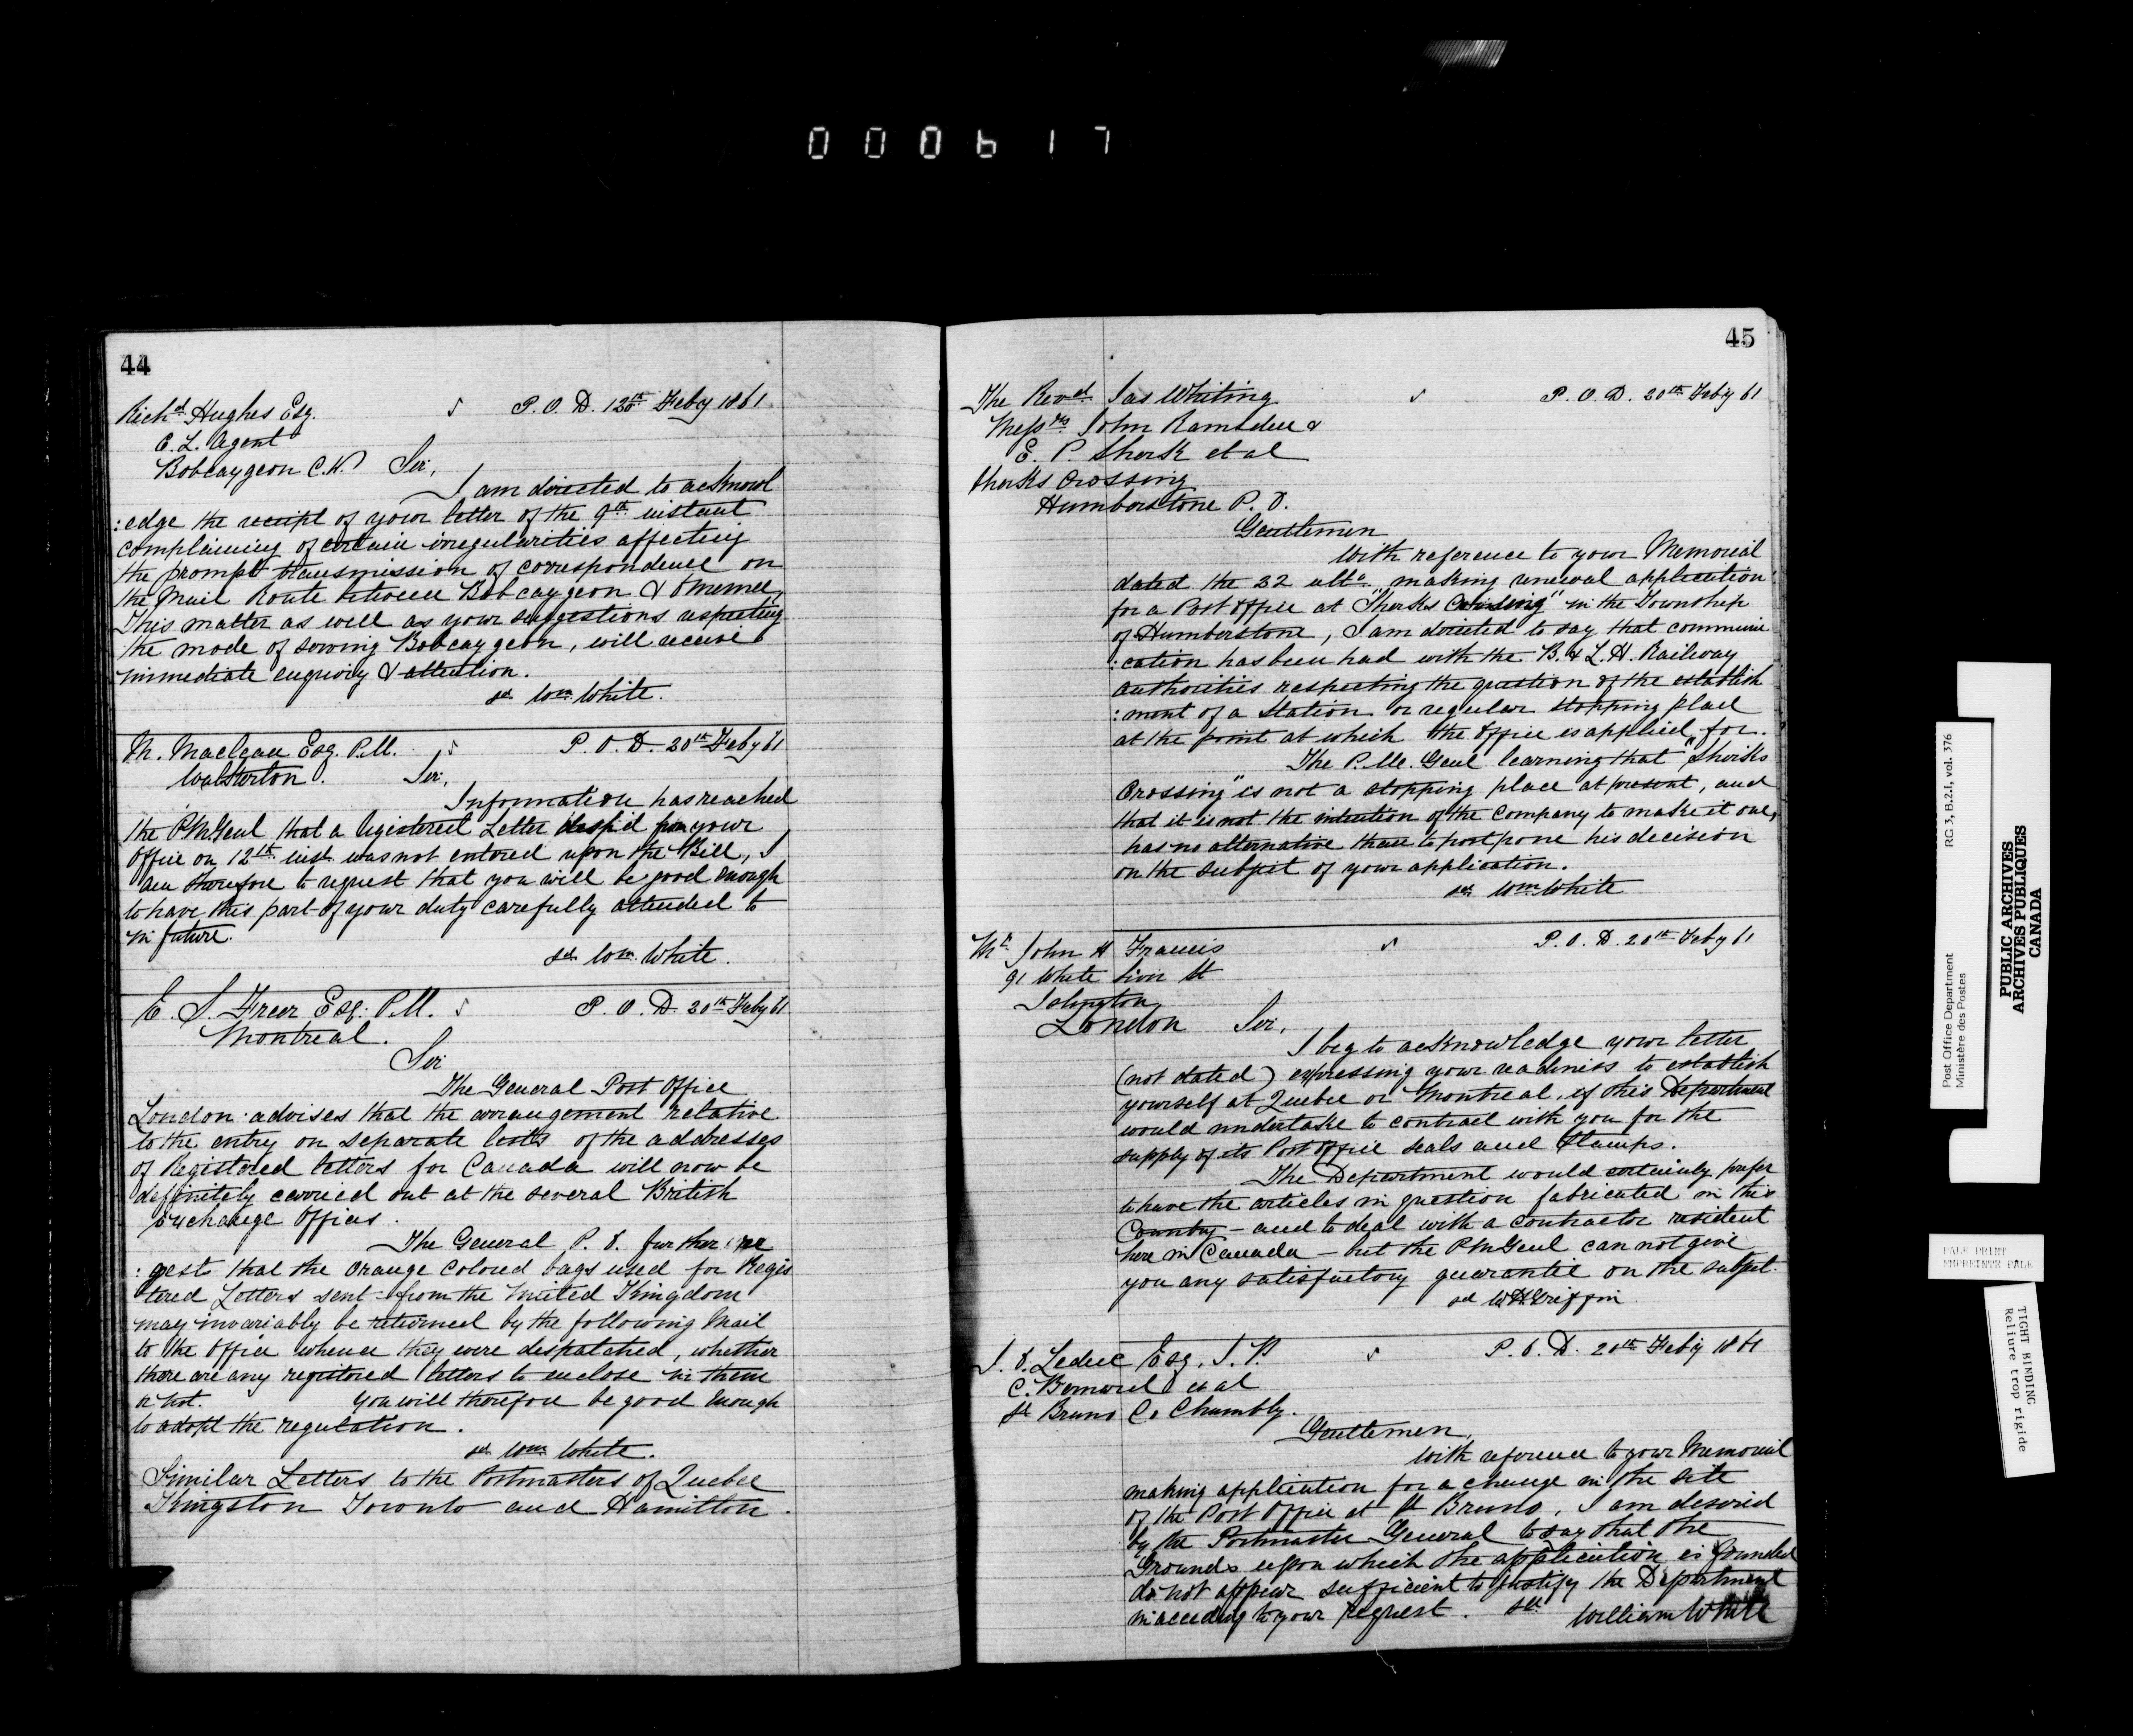 000617
44
Richd Hughes Esq. P. O. D. 120th Feby 1861
C. L. Agent
Bobcaygeon C.W. Sir,
I am directed to acknowl
:edge the receipt of your letter of the 9th instant
complaining of certain irregularities affecting
the prompt transmission of correspondence on
the Mail Route between Bobcaygeon & Omemee,
This matter as well as your suggestions respecting
the mode of serving Bobcaygeon, will receive
immediate enquiry & attention.
sd Wm White.
M. Maclean Esq. P.M. P. O. D. 20th Feby 61
Walkerton. Sir,
Information has reached
the PMGenl that a Registered Letter desp'd from your
Office on 12th inst was not entered upon the Bill, I
am therefore to request that you will be good enough
to have this part of your duty carefully attended to
in future.
sd Wm White.
E. S. Freer Esq. P.M. P. O. D. 20th Feby 61
Montreal.
Sir
The General Post Office
London advises that the arrangement relative
to the entry on separate lists of the addresses
of Registered letters for Canada will now be
definitely carried out at the several British
exchange Offices.
The General P. O. further
:gests that the Orange Colored bags used for Regis
tered Letters sent from the United Kingdom
may invariably be returned by the following Mail
to the Office whence they were despatched, whether
there are any registered letters to enclose in them
or not. You will therefore be good enough
to adopt the regulation.
sd Wm White.
Similar Letters to the Postmasters of Quebec
Kingston Toronto and Hamilton.
45
The Revd Jas Whiting P. O. D. 20th Feby 61
Messrs John Ramsden &
E. P. Sherk et al
Sherks Crossing
Humberstone P. O.
Gentlemen
With reference to your Memorial
dated the 22 ulto making renewal application
for a Post Office at "Sherks Crossing" in the Township
of Humberstone, I am directed to say that communi
:cation has been had with the B. & L. H. Railway
authorities respecting the question of the establish
:ment of a Station or regular stopping place
at the point at which the Office is applied for.
The P. M. Genl learning that "Sherks
Crossing" is not a stopping place at present, and
that it is not the intention of the Company to make it one,
has no alternative than to postpone his decision
on the subject of your application.
sd Wm White
Mr John H Francis P. O. D. 20th Feby 61
91 White Lion St
Islington
London Sir,
I beg to acknowledge your letter
(not dated) expressing your readiness to establish
yourself at Quebec or Montreal, if this Department
would undertake to contract with you for the
supply of its Post Office Seals and Stamps.
The Department would certainly prefer
to have the articles in question fabricated in this
Country - and to deal with a contractor resident
here in Canada - but the PMGenl can not give
you any satisfactory guarantee on the subject.
sd W H Griffin
J. O. Leduc Esq. J. P. P. O. D. 20th Feby 1861
C. Bernard et al
St Bruno Co Chambly.
Gentlemen,
With reference to your Memorial
making application for a change in the site
of the Post Office at St Bruno, I am desired
by the Postmaster General to say that the
Grounds upon which the application is founded
do not appear sufficient to justify the Department
in acceding to your request. sd William White
Post Office Department RG 3, B.2.I, vol. 376
Ministère des Postes
PUBLIC ARCHIVES
ARCHIVES PUBLIQUES
CANADA
PALE PRINT
EMPREINTE PALE
TIGHT BINDING
Reliure trop rigide